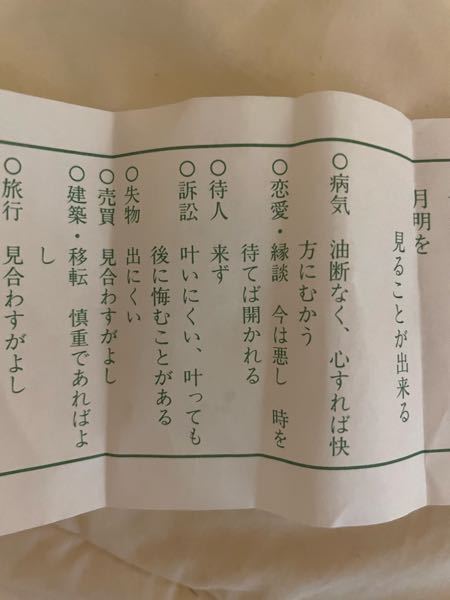 月明を
見ることが出来る
○病気　油断なく、心すれば快
方にむかう
○恋愛・縁談　今は悪し　時を
待てば開かれる
○待人　来ず
○訴訟　叶いにくい、叶っても
後に悔むことがある
○失物　出にくい
○売買　見合わすがよし
○建築・移転　慎重であればよ
し
○旅行　見合わすがよし